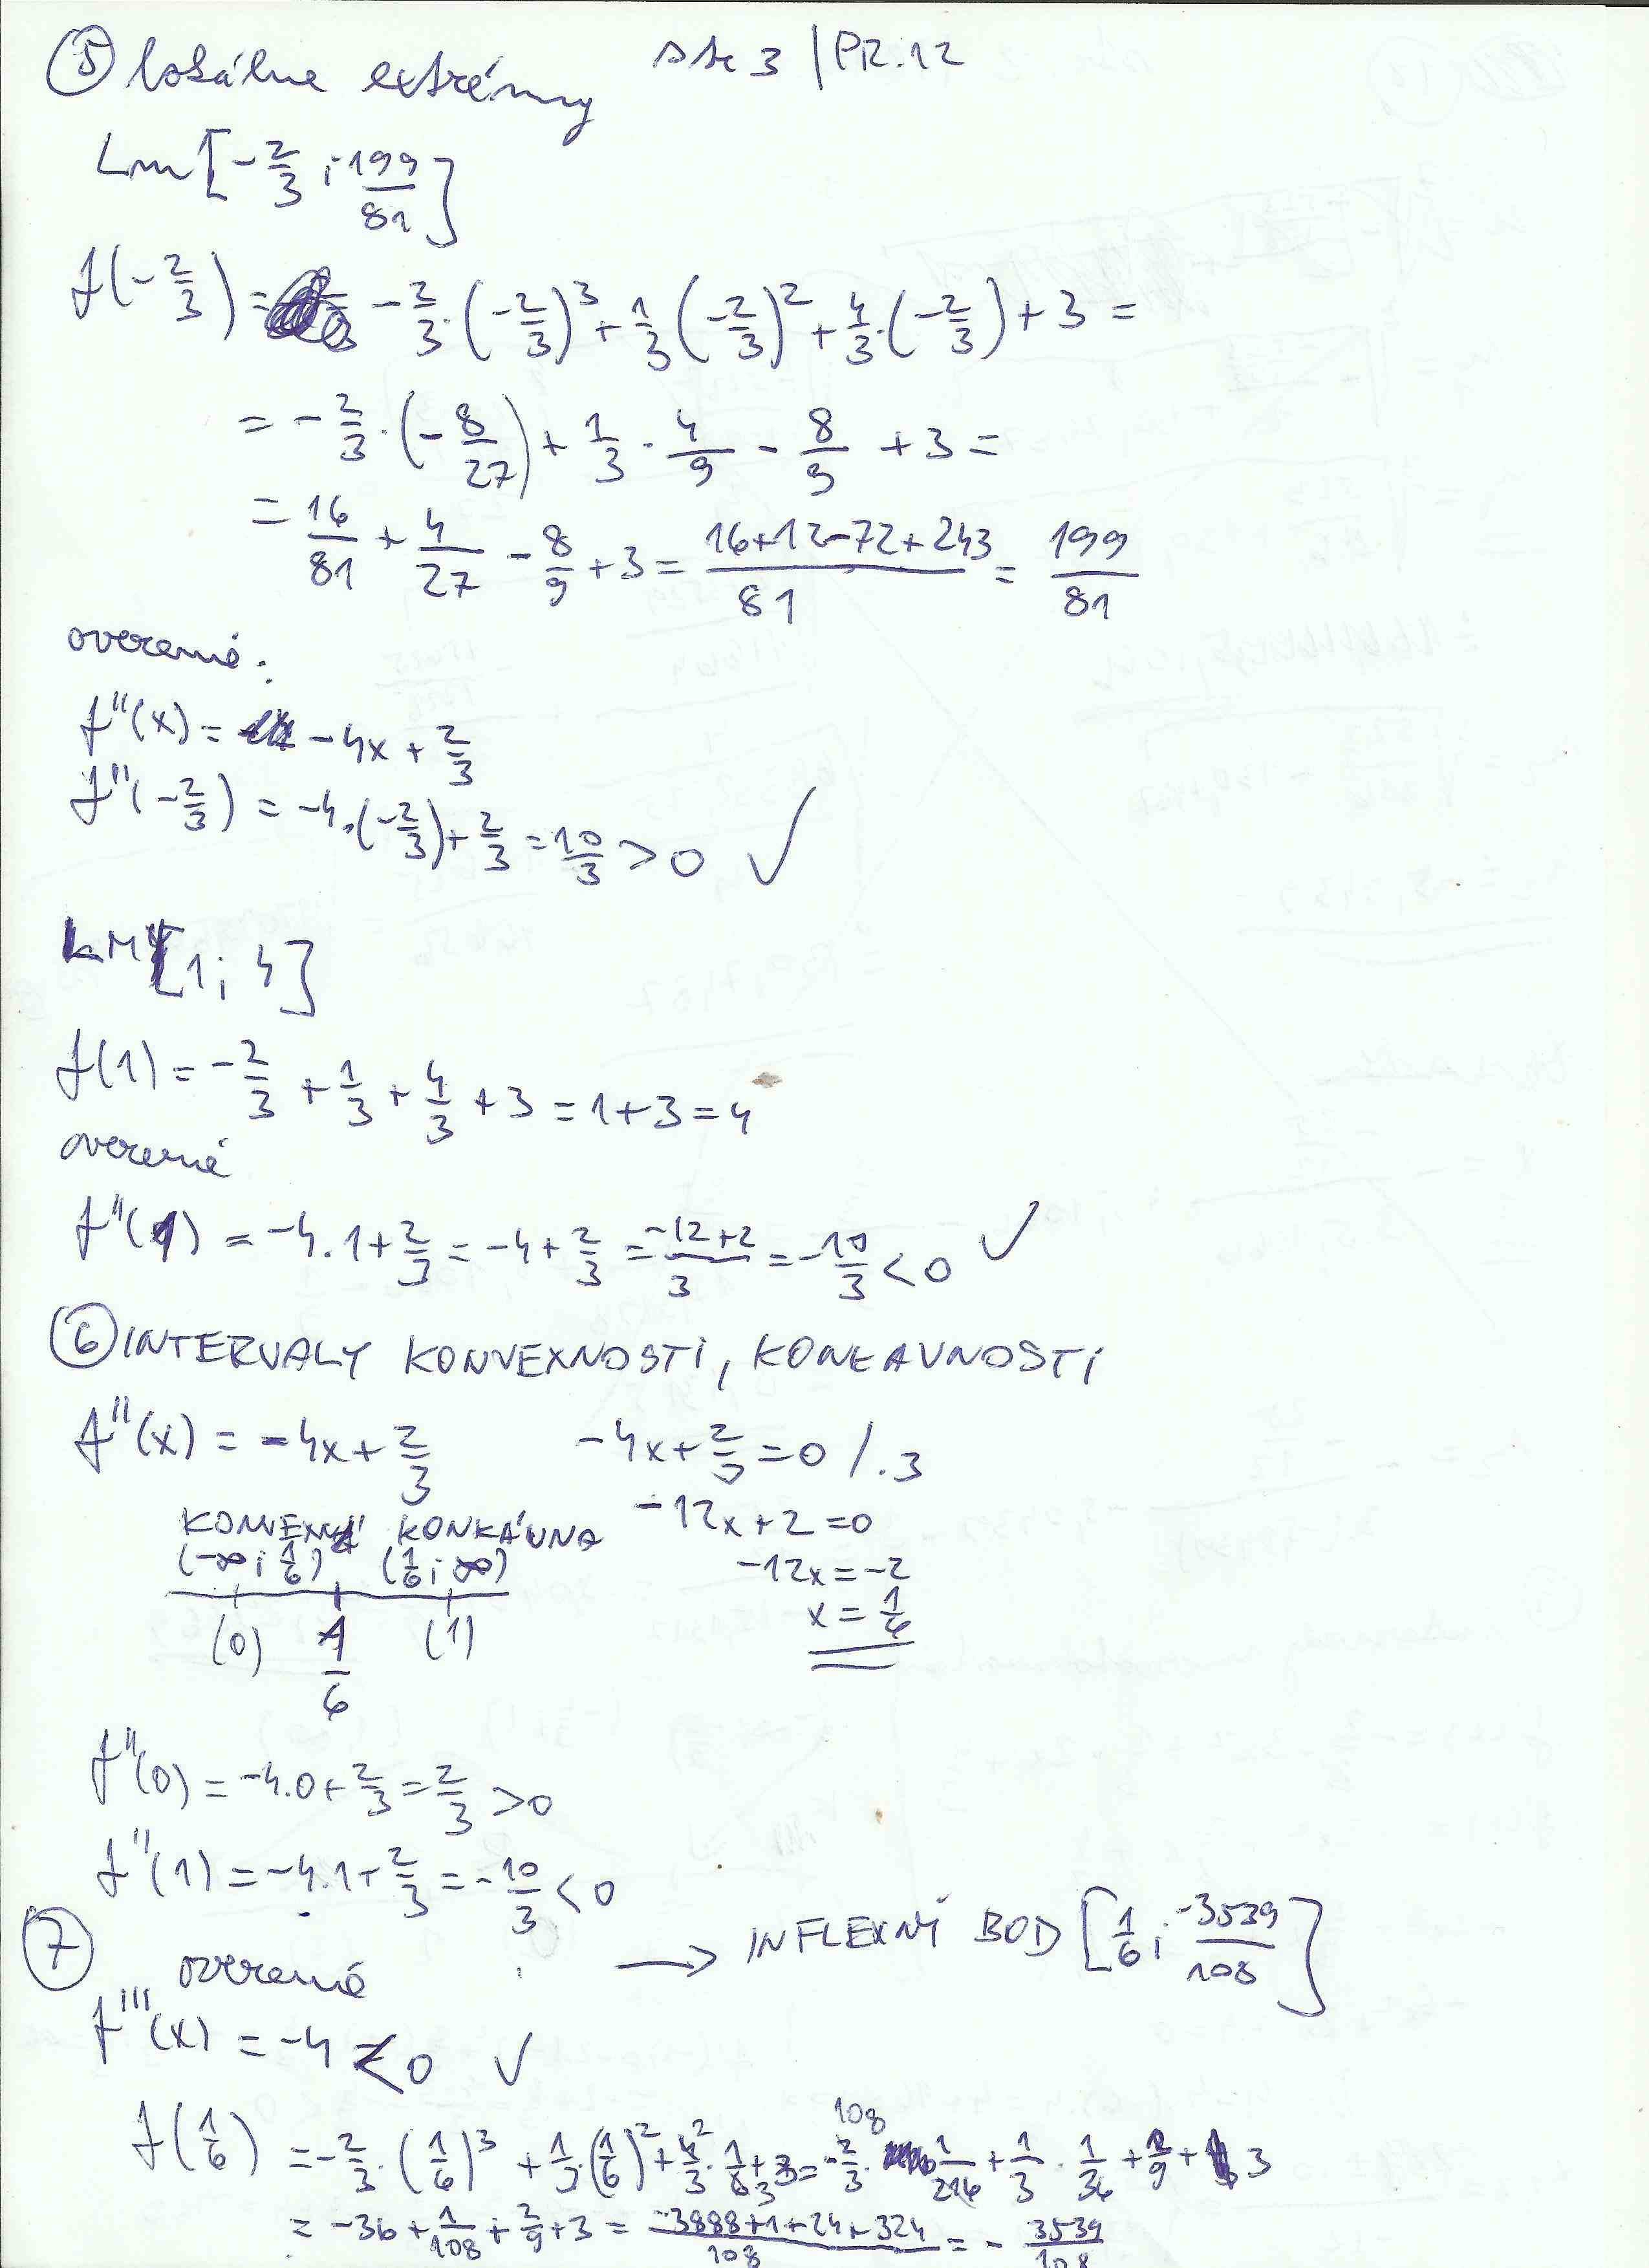 ⑤ lokálne extrémy str 3 | PR.12
Lm [-2/3 ; 199/81]
f(-2/3) = -2/3 · (-2/3)³ + 1/3 (-2/3)² + 4/3 · (-2/3) + 3 =
= -2/3 · (-8/27) + 1/3 · 4/9 - 8/9 + 3 =
= 16/81 + 4/27 - 8/9 + 3 = (16+12-72+243)/81 = 199/81
overenie:
f''(x) = -4x + 2/3
f''(-2/3) = -4 · (-2/3) + 2/3 = 10/3 > 0 ✓
LM [1; 4]
f(1) = -2/3 + 1/3 + 4/3 + 3 = 1+3 = 4
overenie
f''(1) = -4.1 + 2/3 = -4 + 2/3 = (-12+2)/3 = -10/3 < 0 ✓
⑥ INTERVALY KONVEXNOSTI, KONKAVNOSTI
f''(x) = -4x + 2/3 -4x + 2/3 = 0 /.3
-12x + 2 = 0
KONVEXNÁ KONKÁVNA
(-∞; 1/6) (1/6; ∞) -12x = -2
x = 1/6
(0) 1/6 (1)
f''(0) = -4.0 + 2/3 = 2/3 > 0
f''(1) = -4.1 + 2/3 = -10/3 < 0
⑦ overenie → INFLEXNÝ BOD [1/6 ; -3539/108]
f'''(x) = -4 < 0 ✓
f(1/6) = -2/3 · (1/6)³ + 1/3 · (1/6)² + 4/3 · 1/6 + 3 = -2/3 · 1/216 + 1/3 · 1/36 + 2/9 + 3
= -36 + 1/108 + 2/9 + 3 = (-3888+1+24+324)/108 = - 3539/108